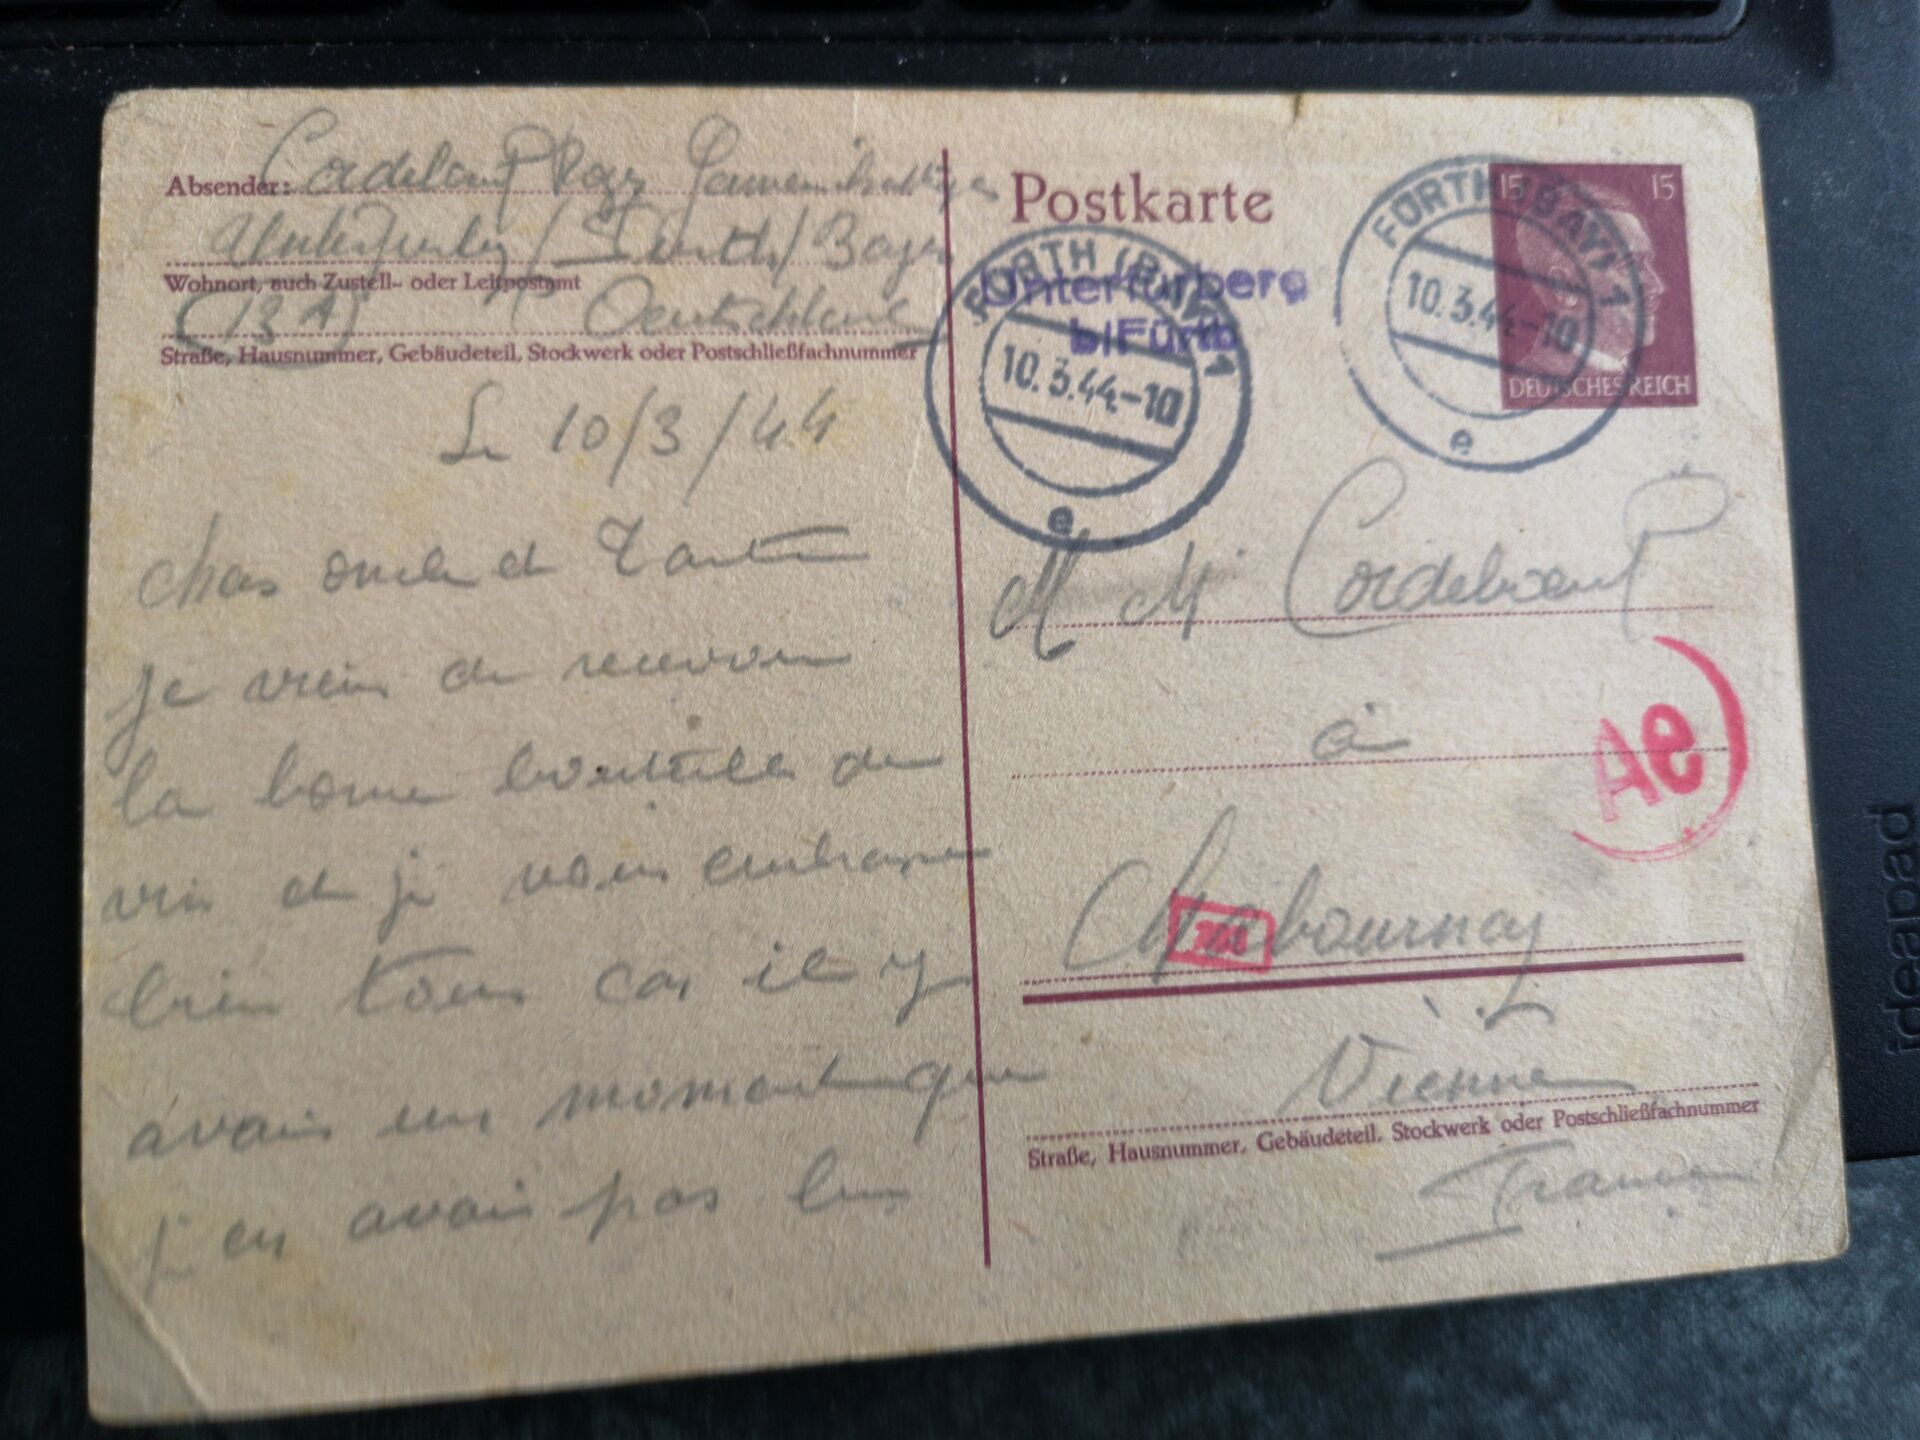 Absender: Cordeboeuf Roger
Unterfurberg / Furth / Bayer
Wohnort, auch Zustell- oder Leitpostamt
(13 A) Deutschland
Straße, Hausnummer, Gebäudeteil, Stockwerk oder Postschließfachnummer
Le 10/3/44
chers oncle et Tante
je viens de recevoir
la bonne bouteille de
vin et je vous embrasse
bien tous car il y
avais un moment que
j en avais pas bu
Postkarte
FÜRTH (BAY) 1
10.3.44-10
e
Unterfürberg
b/Fürth
FÜRTH (BAY) 1
10.3.44-10
e
15 15
DEUTSCHES REICH
M M Cordeboeuf
à
Ae
Chabournay
Vienne
Straße, Hausnummer, Gebäudeteil, Stockwerk oder Postschließfachnummer
France
ideapad